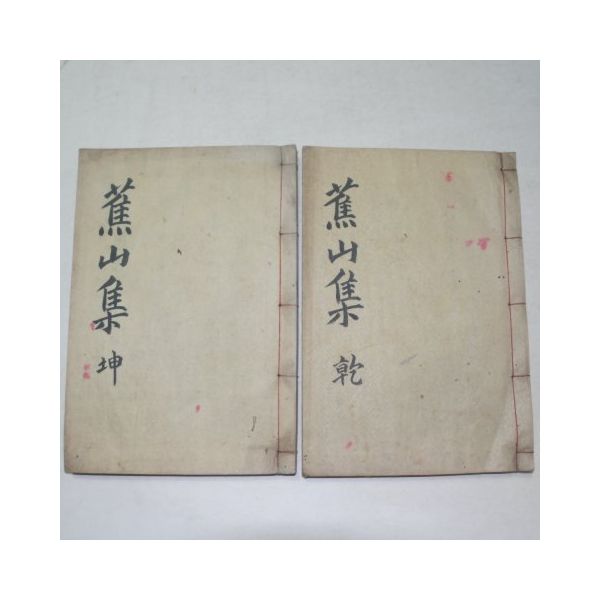 蕉山集 乾
蕉山集 坤